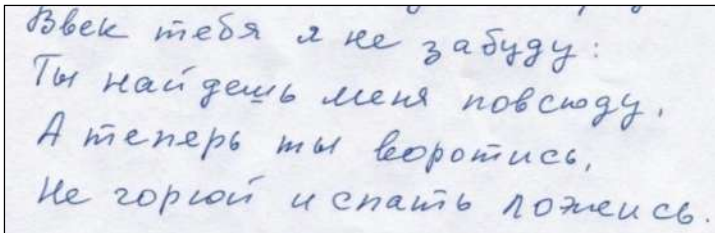 Ввек тебя я не забуду:
Ты найдешь меня повсюду.
А теперь ты воротись,
Не горюй и спать ложись.